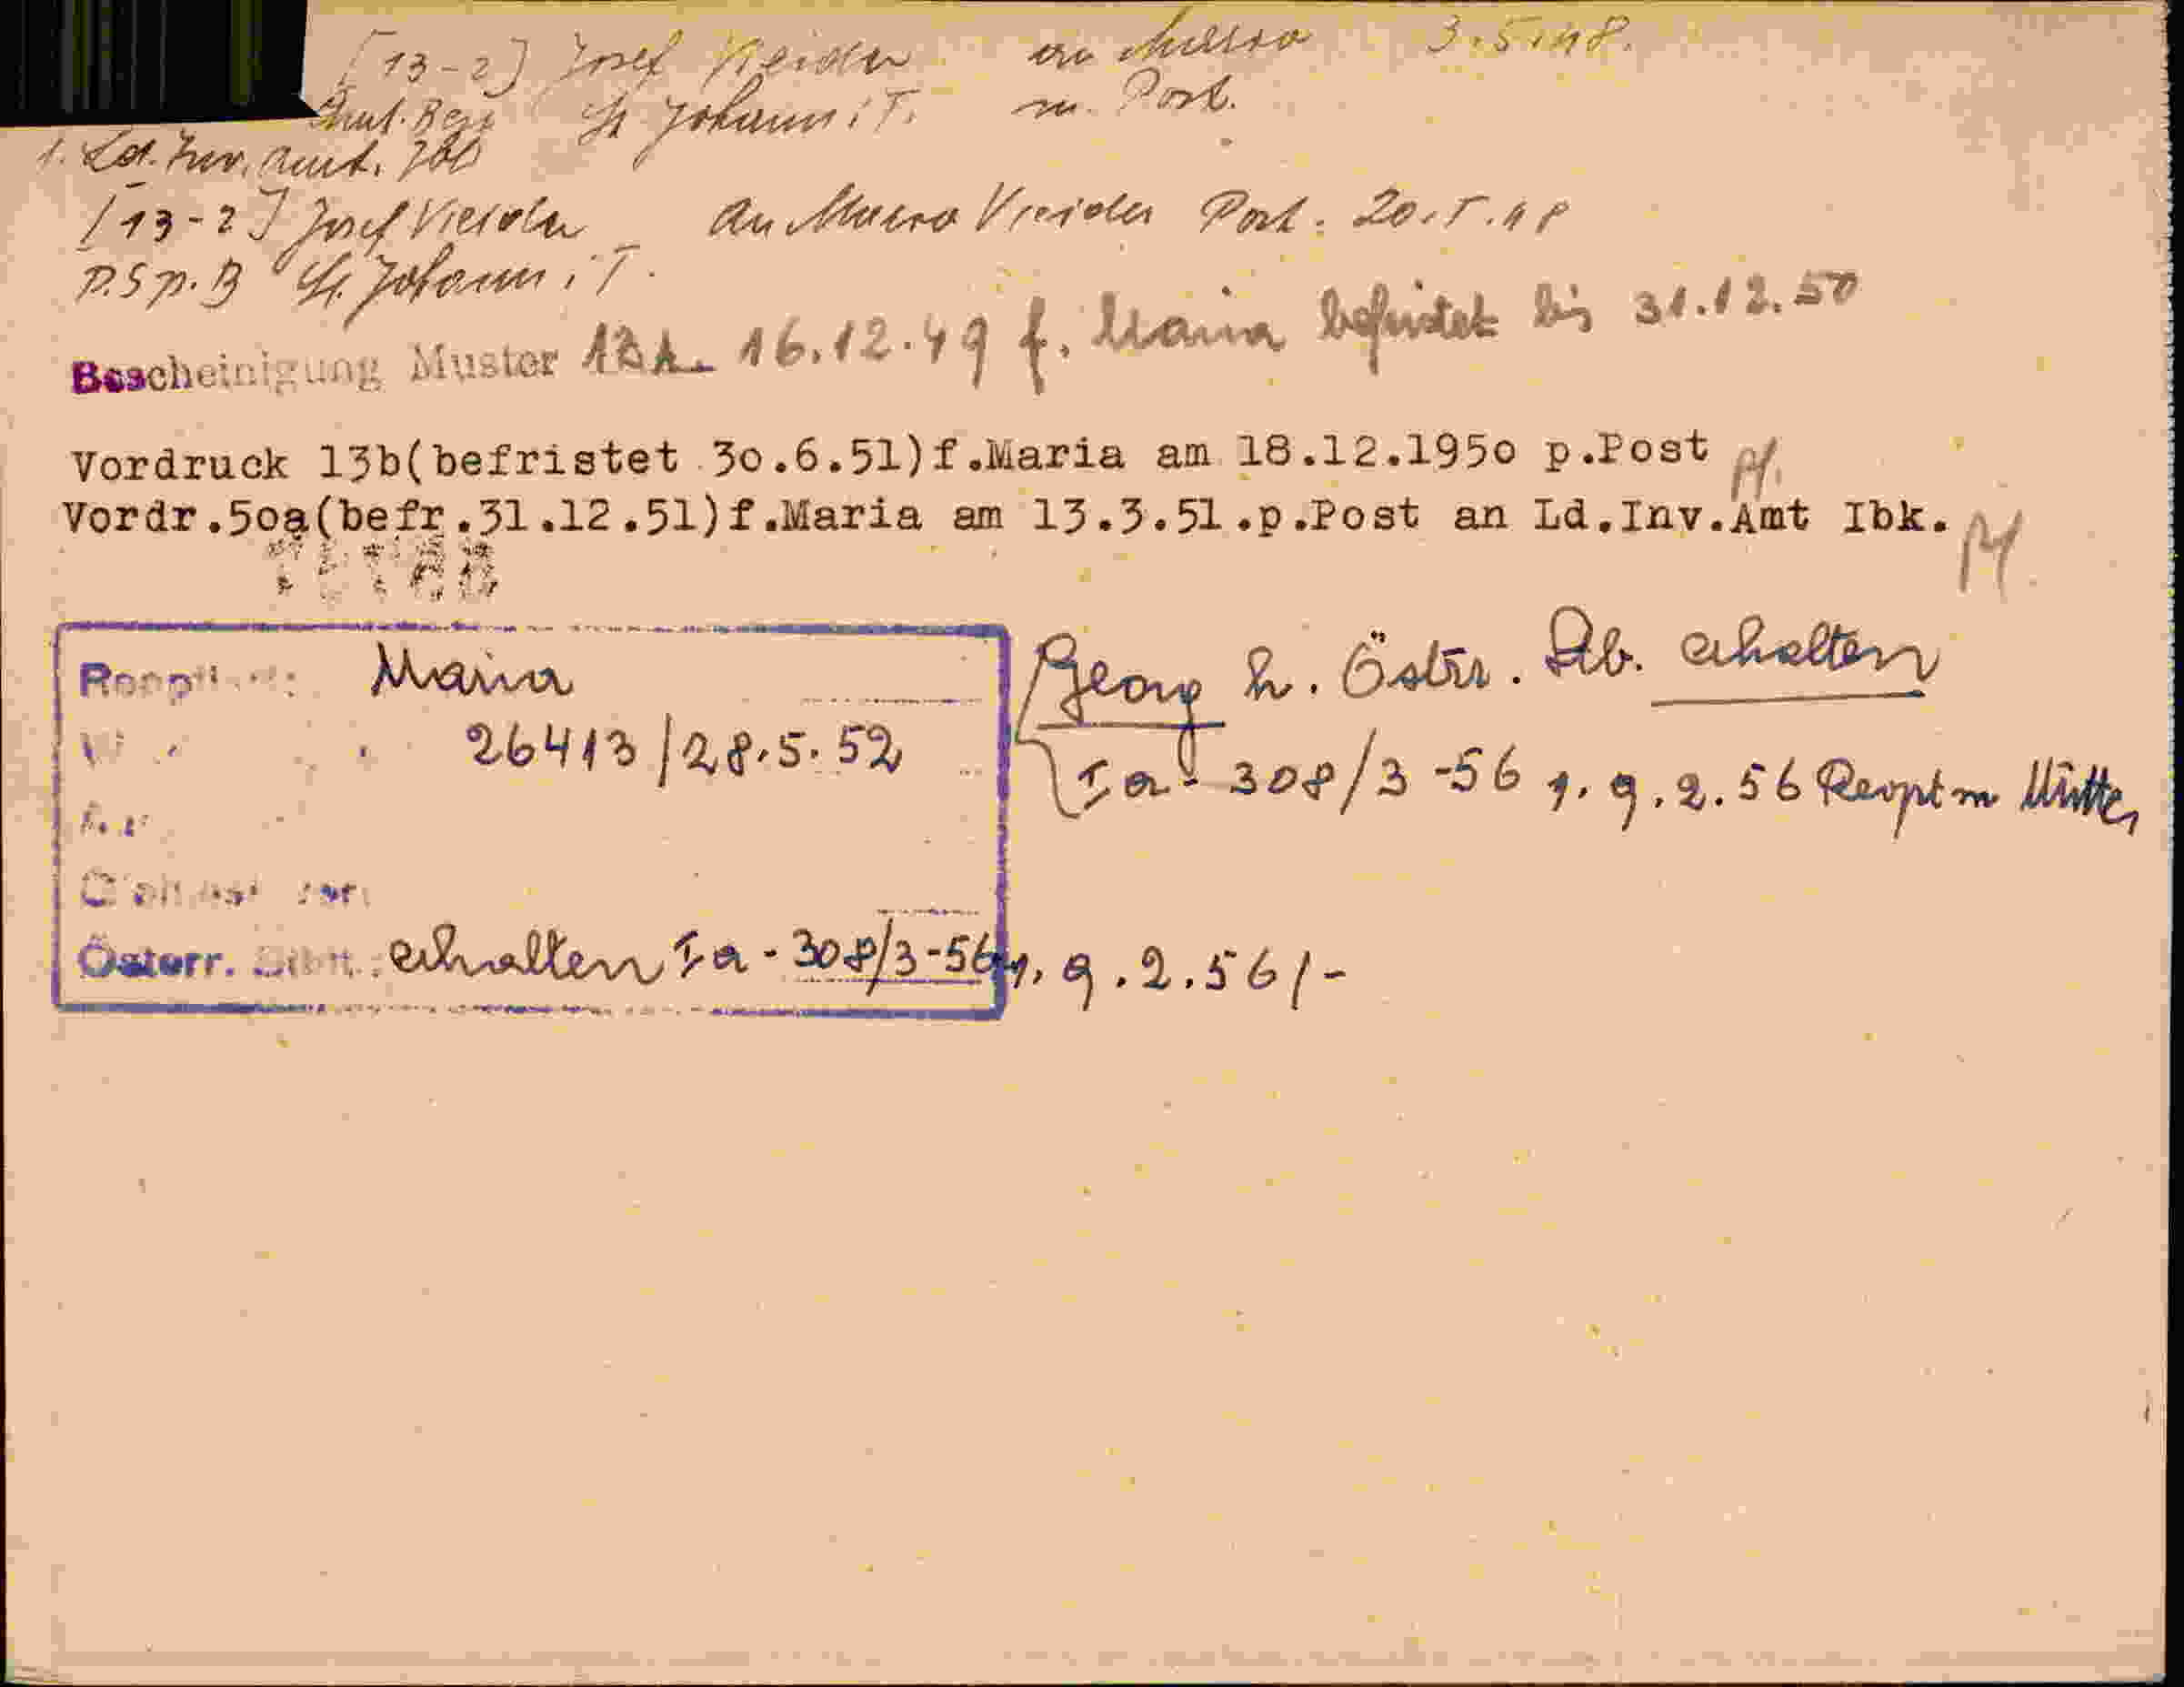 [13-2] Josef Vieider an Maria 3.5.48.
St. Johann i T. m. Post.
1. Ld. Inv. Amt. Ibk
[13-2] Josef Vieider An Maria Vieider Post. 20.5.48
P.Sp.B St. Johann i T.
Bescheinigung Muster 13A. 16.12.49 f. Maria befristet bis 31.12.50
Vordruck 13b(befristet 30.6.51)f.Maria am 18.12.1950 p.Post
Vordr.50a(befr.31.12.51)f.Maria am 13.3.51.p.Post an Ld.Inv.Amt Ibk.
Maria
26413/28.5.52
Österr. erhalten Ia-308/3-56 v. 9.2.56/-
Georg h. Östr. Stb. erhalten
Ia-308/3-56 v. 9.2.56 Reopt m Mutter